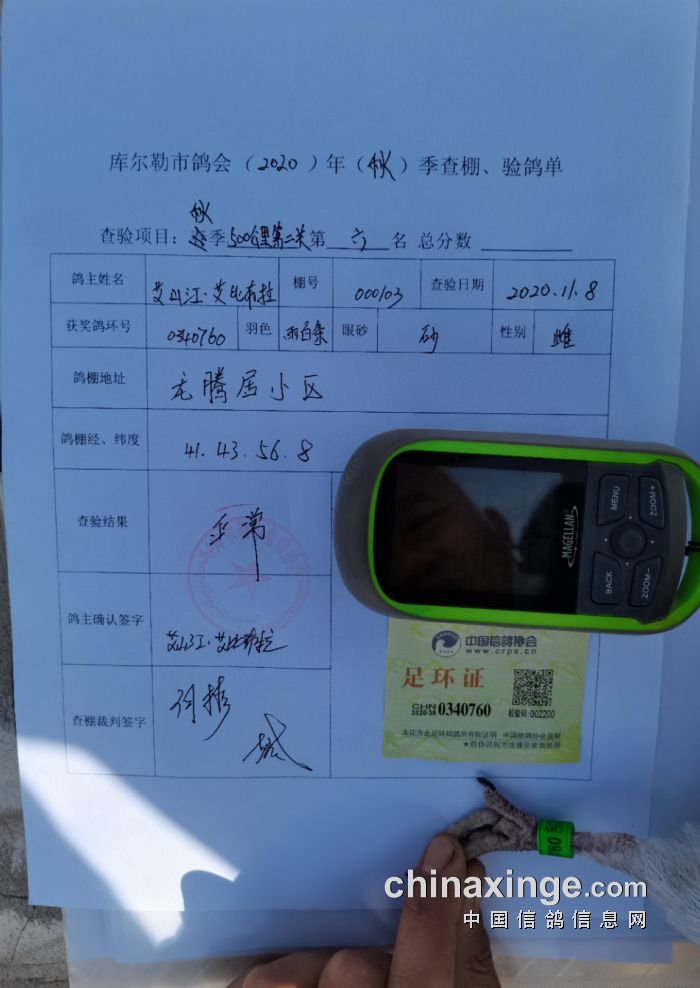 库尔勒市鸽会（2020）年（秋）季查棚、验鸽单
秋
查验项目：季500公里第二关第 六 名 总分数
鸽主姓名 艾山江·艾比布拉 棚号 000103 查验日期 2020.11.8
获奖鸽环号 0340760 羽色 雨白条 眼砂 砂 性别 雌
鸽棚地址 龙腾居小区
鸽棚经、纬度 41.43.56.8
查验结果 正常
鸽主确认签字 艾山江·艾比布拉
查棚裁判签字
MAGELLAN
MENU
ZOOM+
BACK
ZOOM−
中国信鸽协会
www.crpa.cn
足环证
CHN
2020-30 0340760 校验码:002200
本证为此足环鸽鸽所有权证明 中国信鸽协会监制
★防伪识别方法请见背面说明
760
chinaxinge.com
中国信鸽信息网